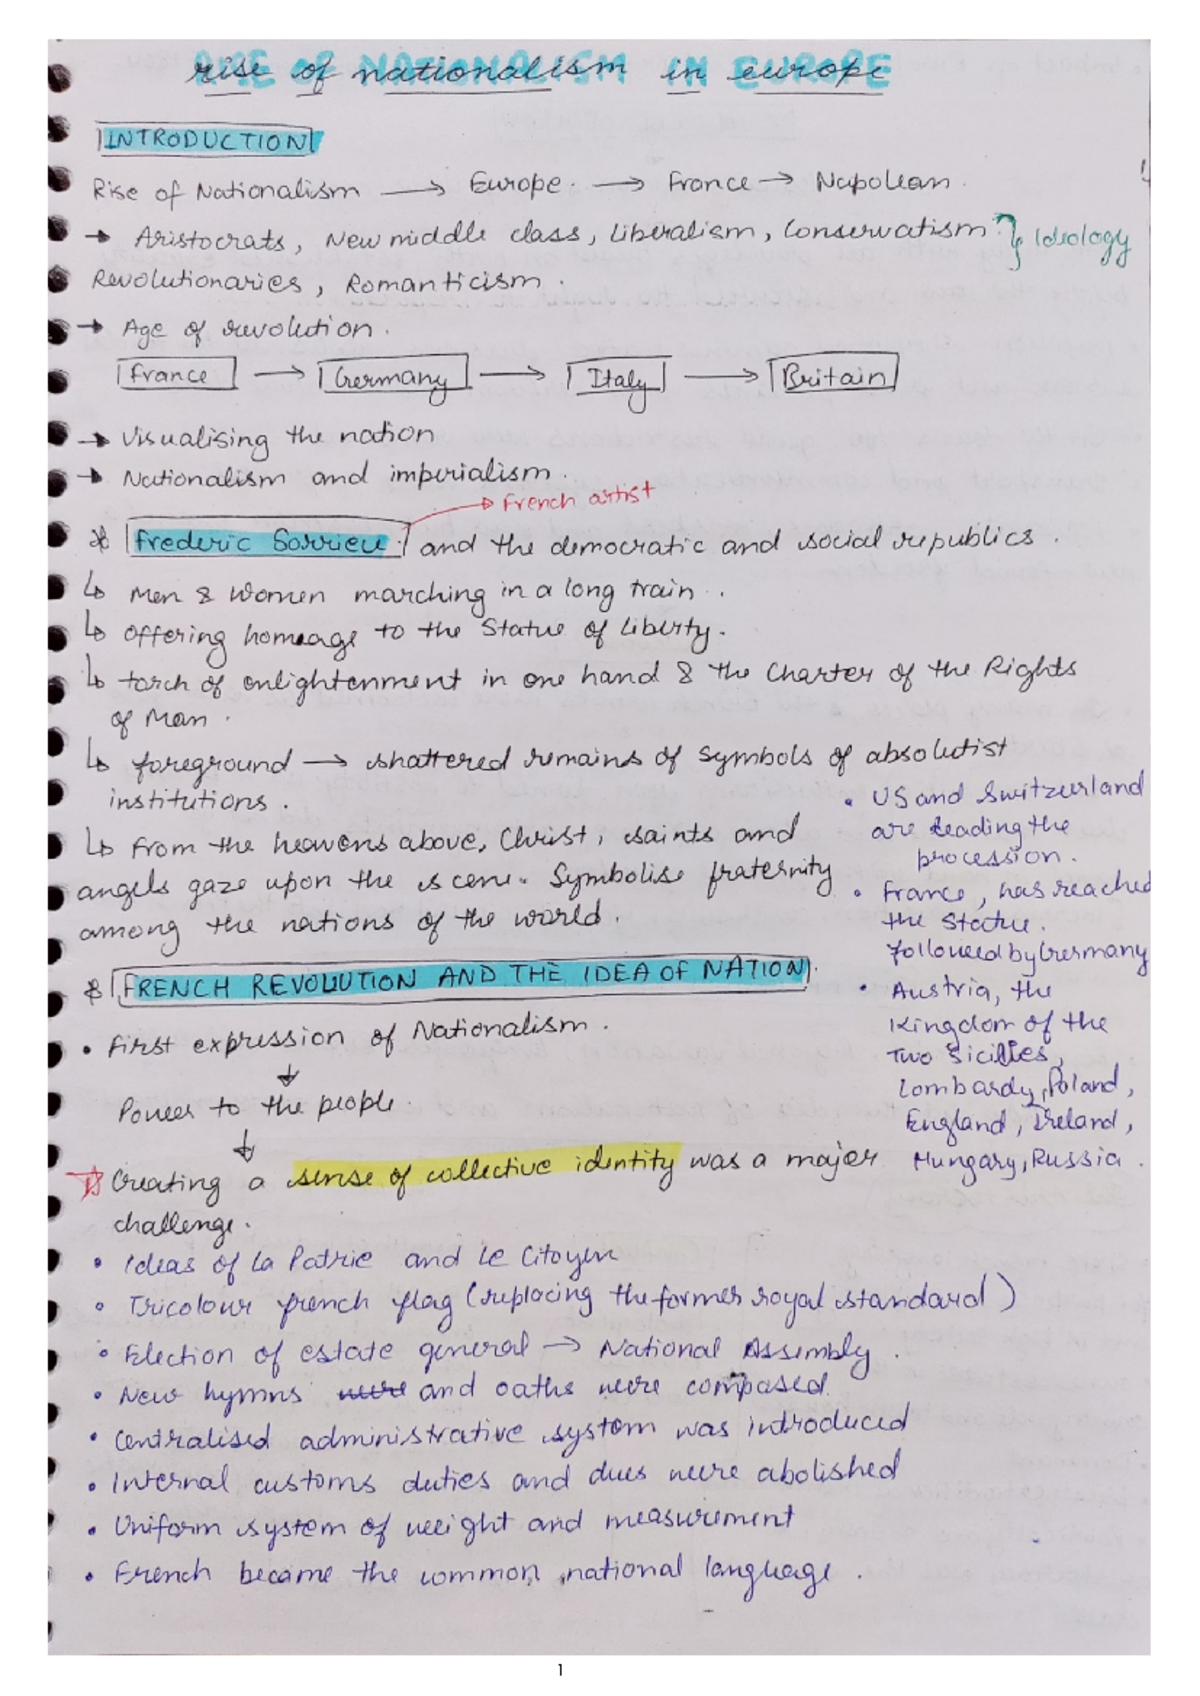 rise of nationalism in europe
INTRODUCTION
Rise of Nationalism → Europe. → France → Napolean.
→ Aristocrats, New middle class, Liberalism, Conservatism. } Ideology
Revolutionaries, Romanticism.
→ Age of revolution.
France → Germany → Italy → Britain
→ Visualising the nation
→ Nationalism and imperialism.
→ French artist
* Frederic Sorrieu. and the democratic and social republics.
↳ Men & Women marching in a long train.
↳ offering homeage to the Statue of Liberty.
↳ torch of enlightenment in one hand & the Charter of the Rights
of Man.
↳ foreground → shattered remains of symbols of absolutist
institutions.
↳ From the heavens above, Christ, saints and
angels gaze upon the scene. Symbolise fraternity
among the nations of the world.
• US and Switzerland
are leading the
procession.
• France, has reached
the Statue.
followed by Germany
• Austria, the
Kingdom of the
Two Sicilies,
Lombardy, Poland,
England, Ireland,
Hungary, Russia.
* FRENCH REVOLUTION AND THE IDEA OF NATION.
• First expression of Nationalism.
↓
Power to the people.
↓
Creating a sense of collective identity was a major
challenge.
• Ideas of La Patrie and Le Citoyen
• Tricolour french flag (replacing the former royal standard)
• Election of estate general → National Assembly.
• New hymns were and oaths were composed.
• Centralised administrative system was introduced
• Internal customs duties and dues were abolished
• Uniform system of weight and measurement
• French became the common national language.
1